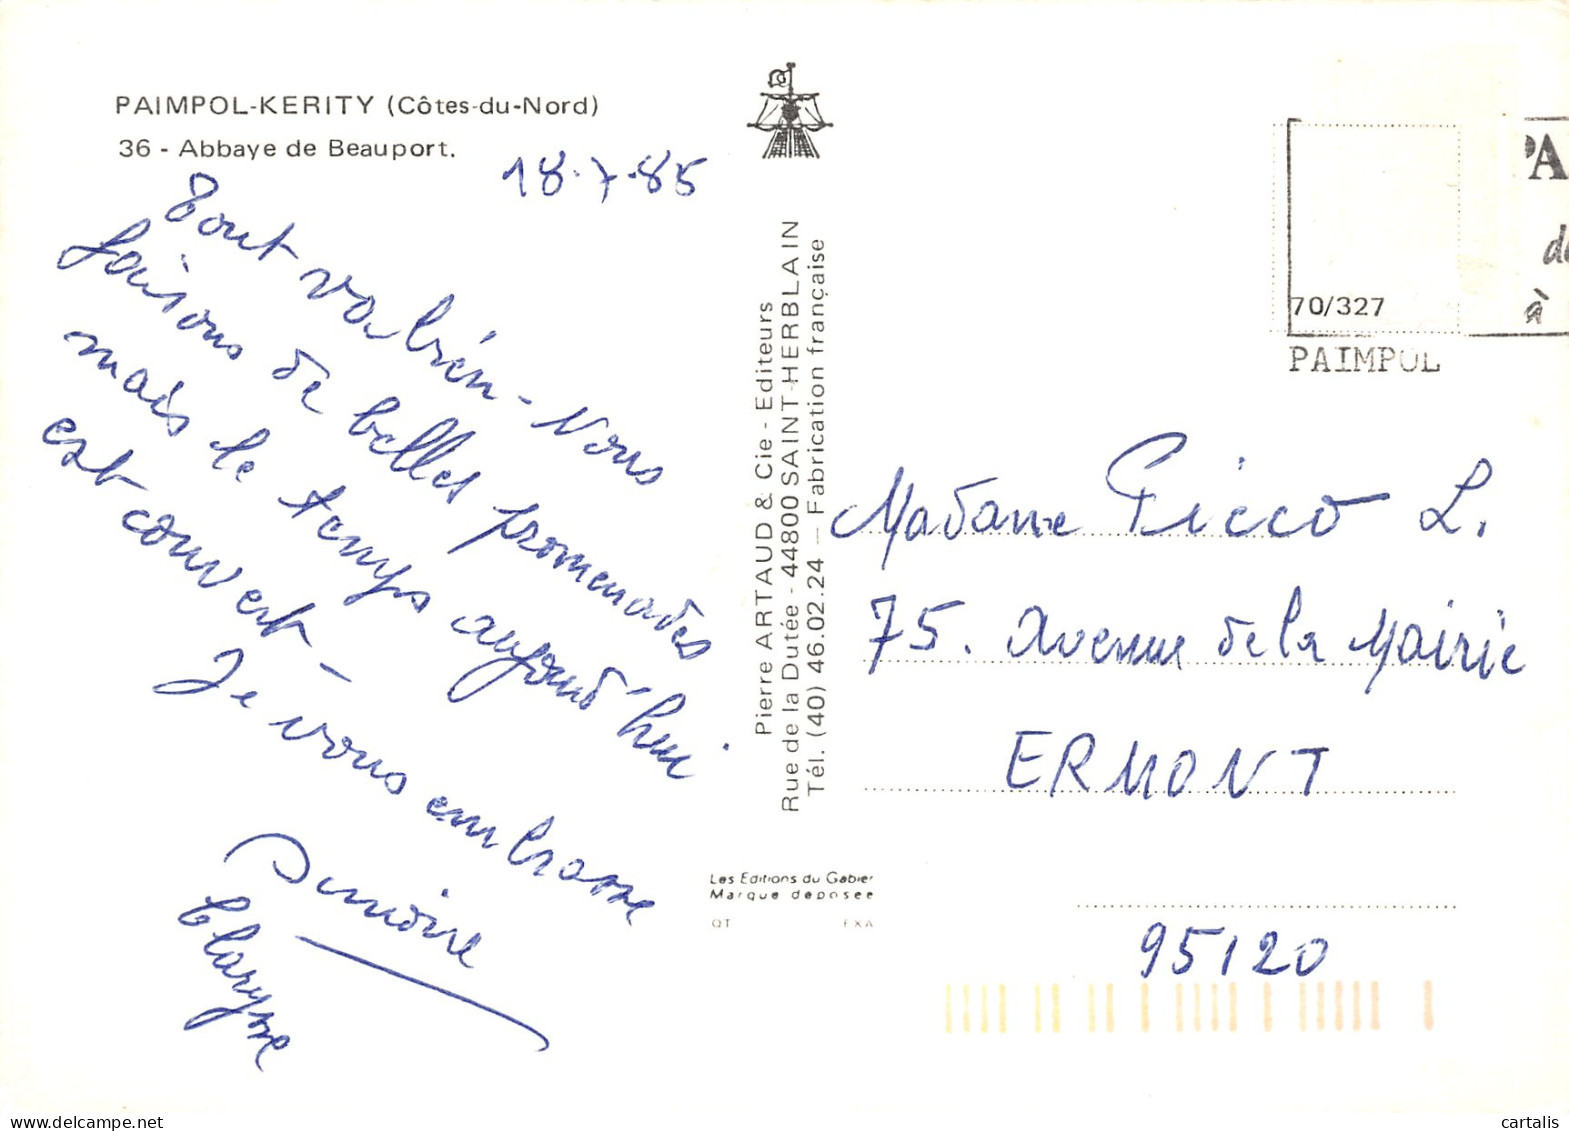 PAIMPOL-KERITY (Côtes-du-Nord)
36 - Abbaye de Beauport.
18.7.85
Tout va bien - Nous
faisons de belles promenades
mais le temps aujourd'hui
est couvert -
Je vous embrasse
Pierre ARTAUD & Cie - Editeurs
Rue de la Dutée - 44800 SAINT-HERBLAIN
Tél. (40) 46.02.24 — Fabrication française
Les Editions du Gabier
Marque déposée
QT EXA
70/327
PAIMPOL
PA
de
à
Madame Picco L.
75. Avenue de la Mairie
ERMONT
95120
cartalis